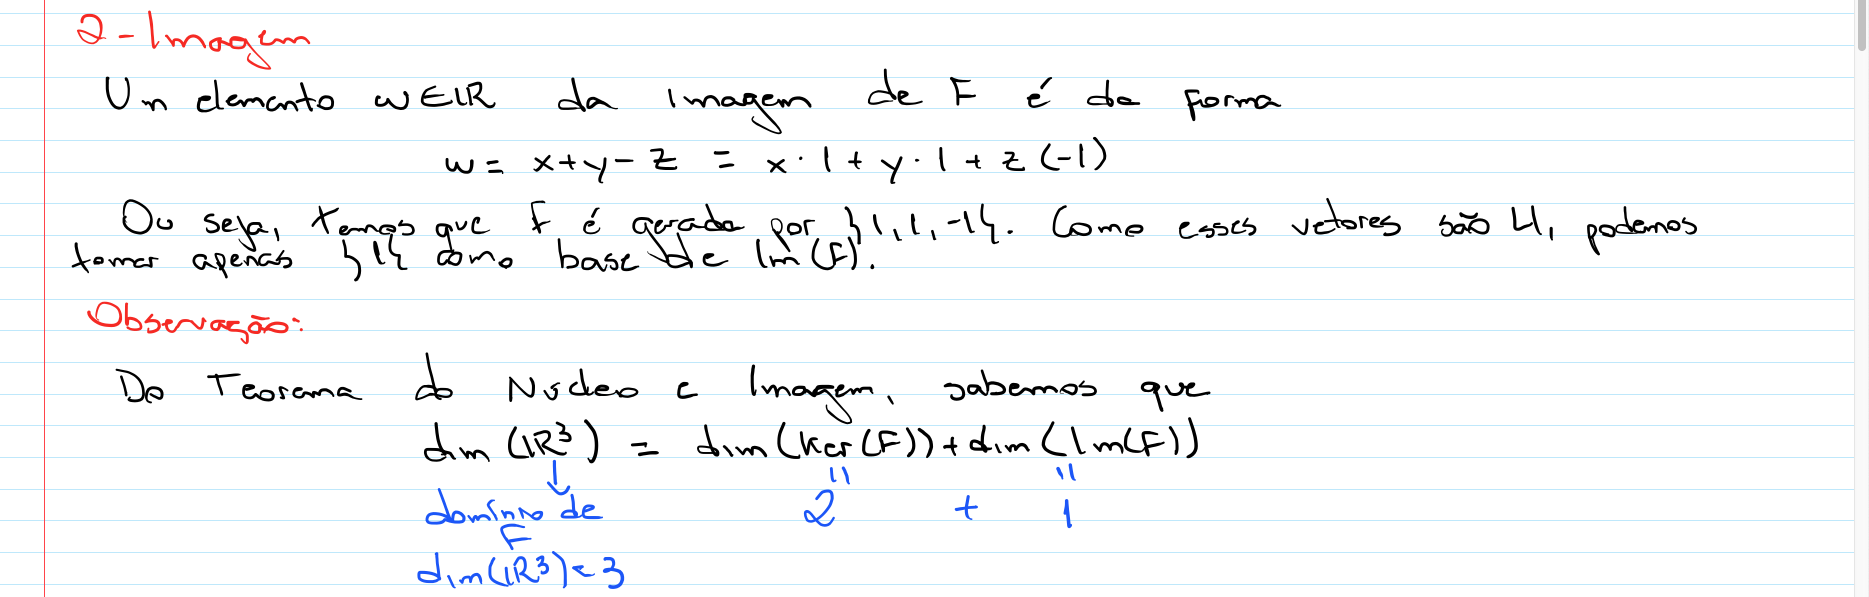 2- Imagem
Um elemento w∈ℝ da imagem de F é da forma
w = x+y-z = x·1 + y·1 + z(-1)
Ou seja, temos que F é gerada por {1,1,-1}. Como esses vetores são LI, podemos
tomar apenas {1} como base de Im(F).
Observação:
Do Teorema do Núcleo e Imagem, sabemos que
dim(ℝ³) = dim(ker(F)) + dim(Im(F))
↓ " "
domínio de 2 + 1
F
dim(ℝ³)=3